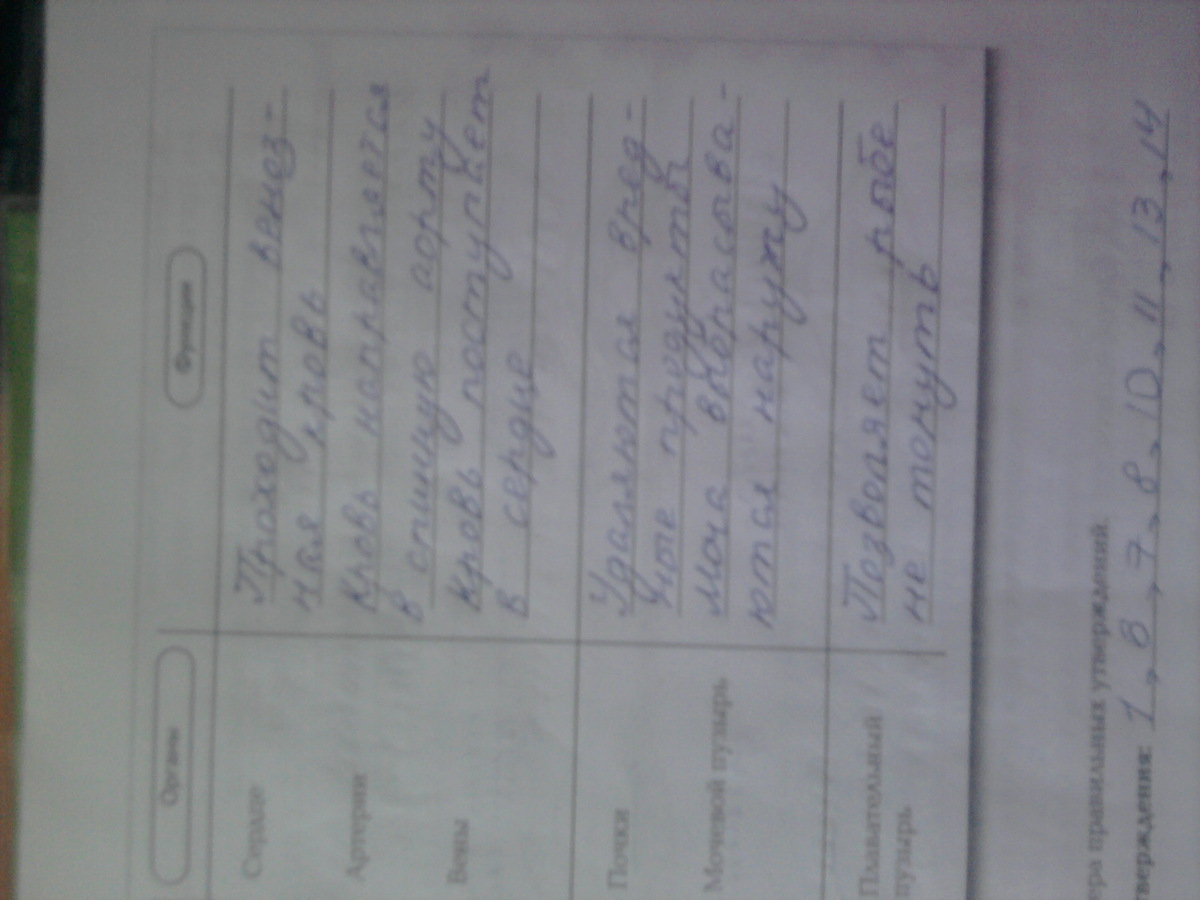 Органы Функции
Сердце Проходит веноз-
ная кровь
Артерии Кровь направляется
в спинную аорту
Вены Кровь поступает
в сердце
Почки Удаляются вред-
ные продукты
Мочевой пузырь Моча выбрасыва-
ются наружу
Плавательный Позволяет рыбе
пузырь не тонуть
ера правильных утверждений.
тверждения: 1, 8, 7, 8, 10, 11, 13, 14